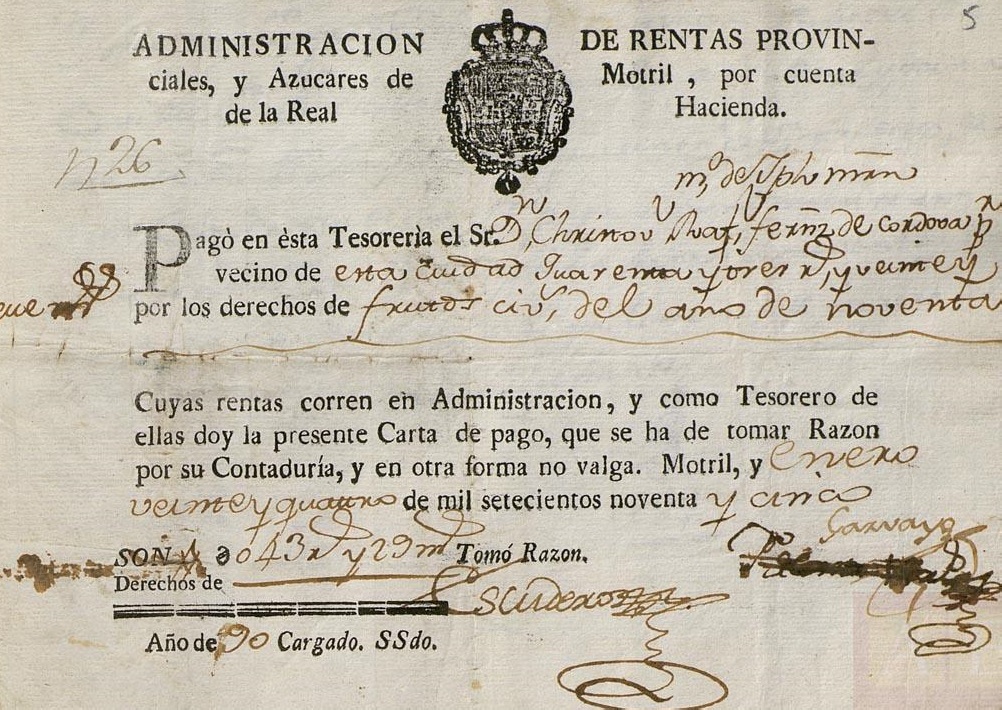 5
ADMINISTRACION DE RENTAS PROVIN-
ciales, y Azucares de Motril, por cuenta
de la Real Hacienda.
N 26
Pagò en èsta Tesorerìa el Sr. Dn Christov Raf, fernz de Cordova
vecino de esta Ciudad quarenta y tres rs, y veinte y
por los derechos de frutos civs, del año de noventa
Cuyas rentas corren en Administracion, y como Tesorero de
ellas doy la presente Carta de pago, que se ha de tomar Razon
por su Contadurìa, y en otra forma no valga. Motril, y Enero
veinte y quattro de mil setecientos noventa y cinco
SON 043 rs y 29 ms Tomó Razon.
Derechos de
Escudero
Año de 90 Cargado. SSdo.